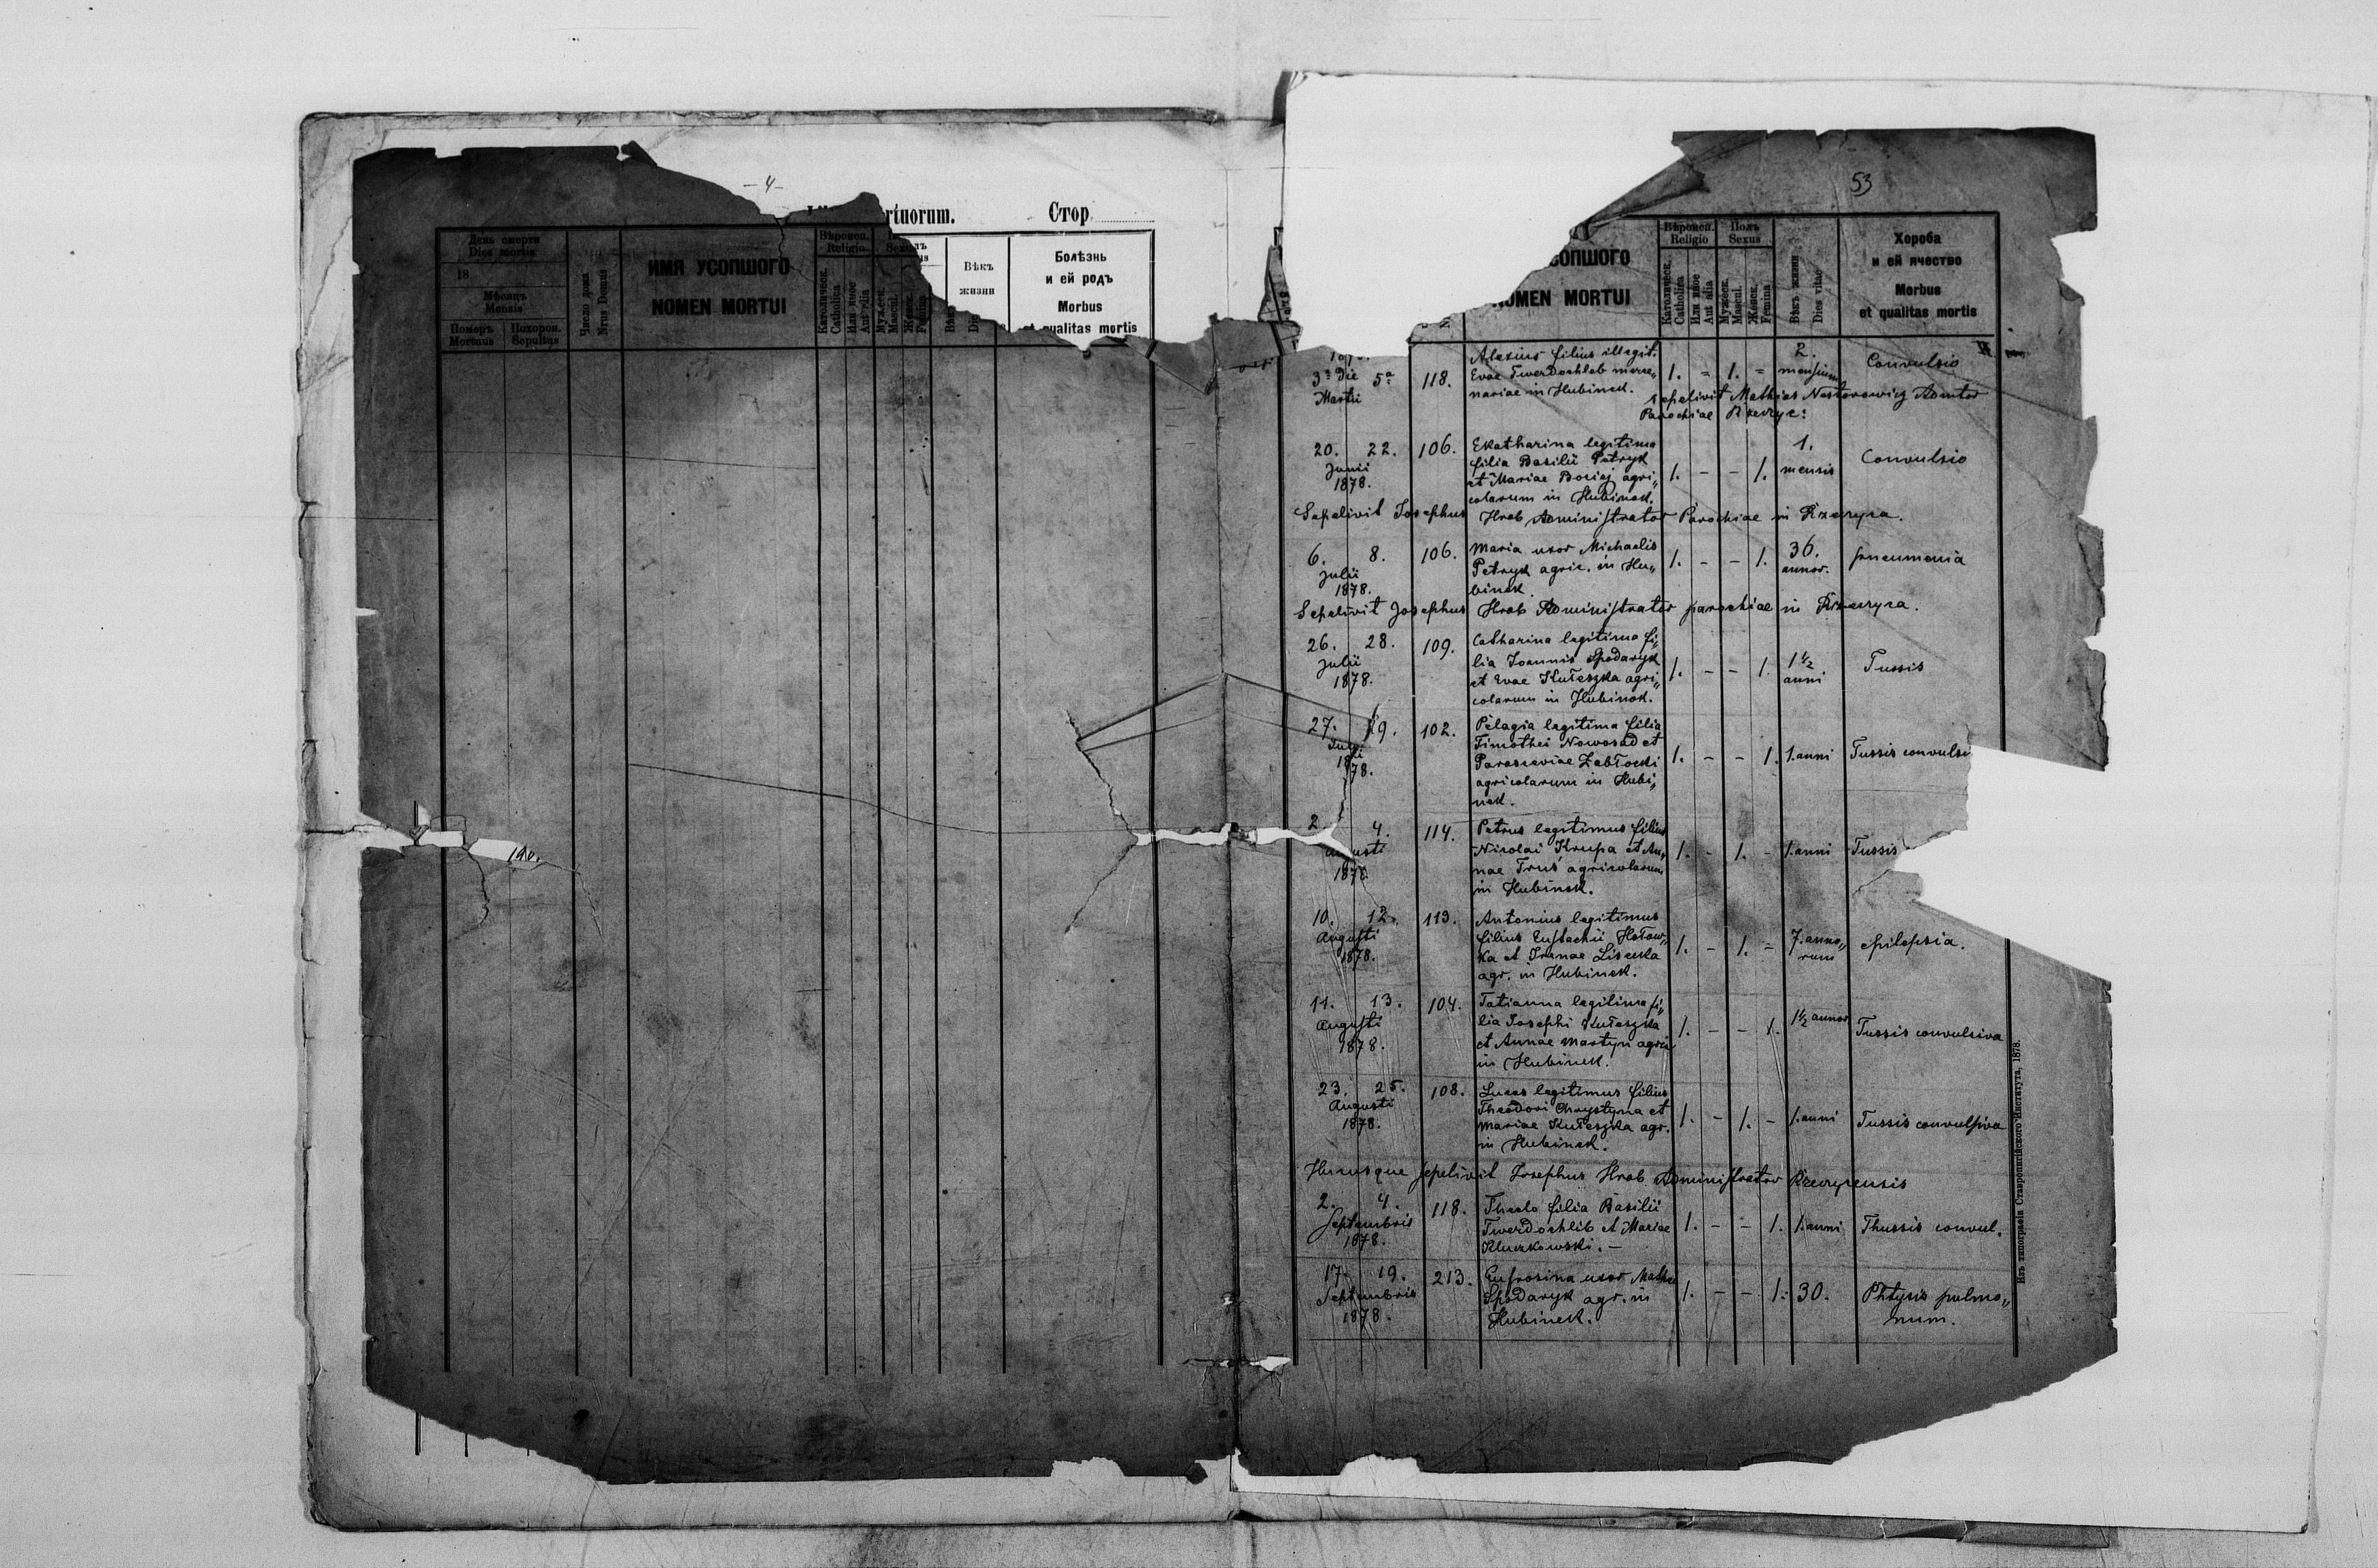 - 4 -
rtuorum. Стор
День смерти
Dies mortis
18
Мѣсяць
Mensis
Померъ Похорон.
Mortuus Sepultus
Число дома
Nrus Domus
ИМЯ УСОПШОГО
NOMEN MORTUI
Вѣроисп.
Religio
Католическ.
Catholica
Или иное
Aut alia
Мужеск.
Mascul.
Женск.
Femina
Вѣкъ
жизни
Болѣзнь
и ей родъ
Morbus
qualitas mortis
53
СОПШОГО
NOMEN MORTUI
Вѣроисп.
Religio
Католическ.
Catholica
Или иное
Aut alia
Полъ
Sexus
Мужеск.
Mascul.
Женск.
Femina
Вѣкъ жизни
Dies vitae
Хороба
и ей ячество
Morbus
et qualitas mortis
3ª Die 5ª 118. Alexius filius illegit. 1. = 1. = 2. Convulsio
Martii Evae Twerdochleb merce„ mensium
nariae in Hubinek.
sepelivit Mathias Nestorowicz Admtor
Parochiae Rzeczyc:
20. 22. 106. Ekatharina legitima 1. - - 1. 1. Convulsio
Junii filia Basilii Petryk mensis
1878. et Mariae Bociej agri„
colarum in Hubinek.
Sepelivit Josephus Hrab Administrator Parochiae in Rzeczyca.
6. 8. 106. Maria uxor Michaelis 1. - - 1. 36. pneumonia
Julii Petryk agric. in Hu„ annor.
1878. binek.
Sepelivit Josephus Hrab Administrator parochiae in Rzeczyca.
26. 28. 109. Catharina legitima fi„ 1. - - 1. 1½ Tussis
Julii lia Joannis Spodaryk anni
1878. et Evae Kułeszka agri„
colarum in Hubinek.
27. 29. 102. Pelagia legitima filia 1. - - 1. 1. anni Tussis convulsi
Julii Timothei Nowosad et
1878. Parasceviae Zabłocki
agricolarum in Hubi„
nek.
2 4. 114. Petrus legitimus filius 1. - 1. - 1. anni Tussis
usti Nicolai Krupa et An„
1878. nae Truś agricolarum
in Hubinek.
10. 12. 113. Antonius legitimus 1. - 1. = 7. anno„ epilepsia.
Augusti filius Eustachii Hołow„ rum
1878. ka et Irenae Lisecka
agr. in Hubinek.
11. 13. 104. Tatianna legitima fi„ 1. - - 1. 1½ annor Tussis convulsiva
Augusti lia Josephi Kułeszka
1878. et Annae Martyn agric
in Hubinek.
23. 25. 108. Lucas legitimus filius 1. - 1. - 1. anni Tussis convulsiva
Augusti Theodori Chrystyna et
1878. Mariae Kułeszka agr.
in Hubinek.
Hucusque sepelivit Josephus Hrab Administrator Rzeczycensis
2. 4. 118. Thecla filia Basilii 1. - - 1. 1. anni Thussis convul.
Septembris Twerdochlib et Mariae
1878. Kluczkowski. -
17. 19. 213. Eufrosina uxor Mathei 1. - - 1. 30. Phtysis pulmo„
Septembris Spodaryk agr. in num.
1878. Hubinek.
Изъ типографіи Ставропигійского Института, 1878.